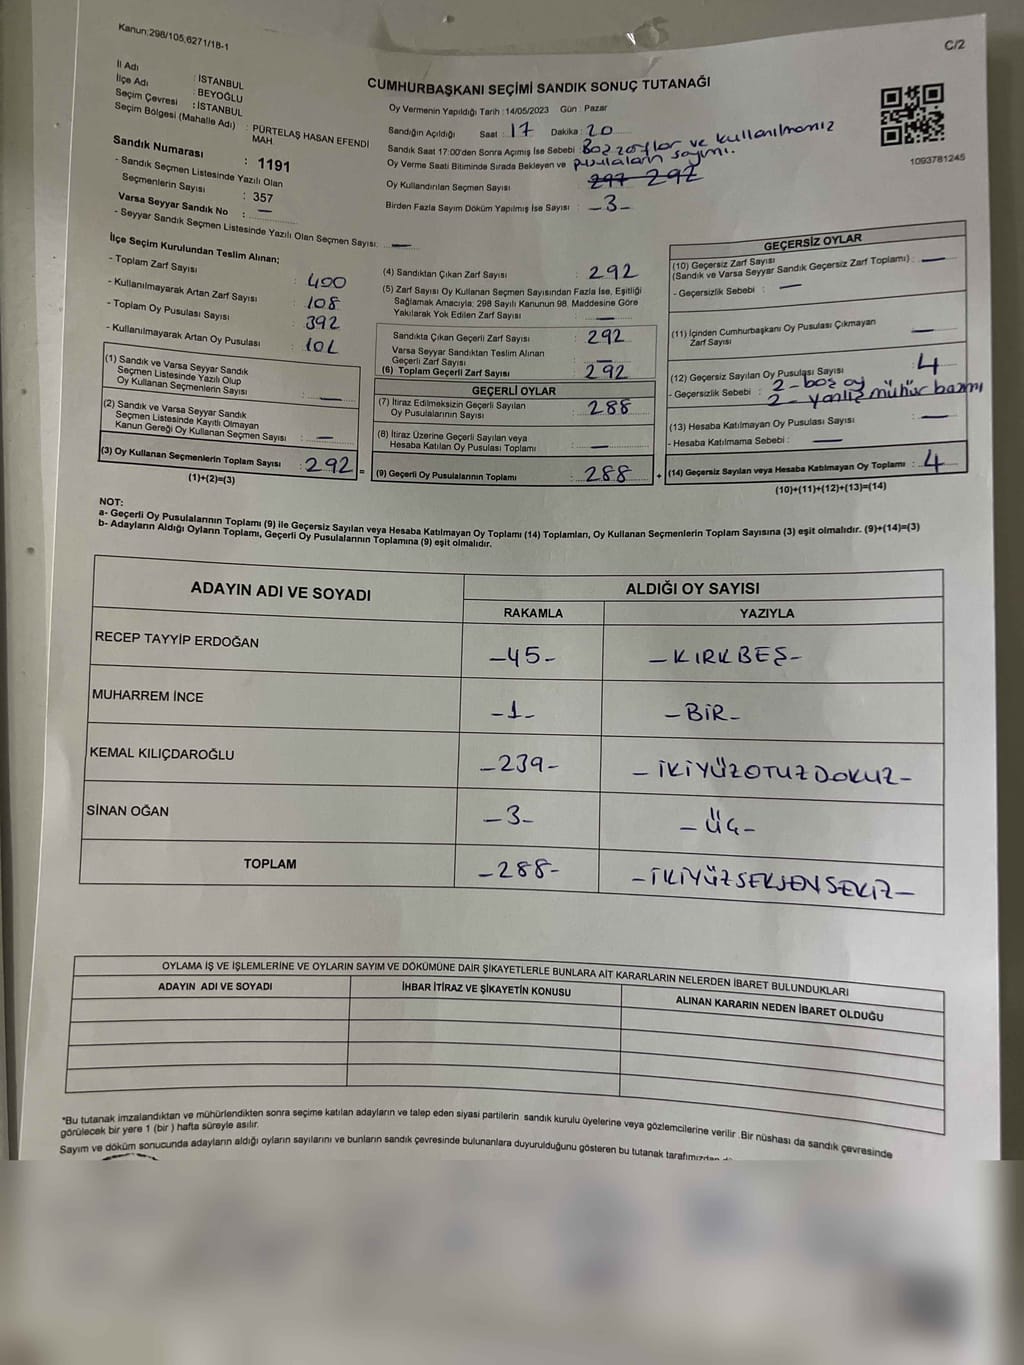 Kanun:298/105,6271/18-1
C/2
İl Adı : İSTANBUL
İlçe Adı : BEYOĞLU
Seçim Çevresi : İSTANBUL
Seçim Bölgesi (Mahalle Adı) : PÜRTELAŞ HASAN EFENDİ MAH
Sandık Numarası : 1191
- Sandık Seçmen Listesinde Yazılı Olan
Seçmenlerin Sayısı : 357
Varsa Seyyar Sandık No : —
- Seyyar Sandık Seçmen Listesinde Yazılı Olan Seçmen Sayısı: —
CUMHURBAŞKANI SEÇİMİ SANDIK SONUÇ TUTANAĞI
Oy Vermenin Yapıldığı Tarih : 14/05/2023 Gün : Pazar
Sandığın Açıldığı Saat : 17 Dakika : 20
Sandık Saat 17:00'den Sonra Açımış İse Sebebi : Boş zarflar ve kullanılmamız
Oy Verme Saati Bitiminde Sırada Bekleyen ve pusulaların sayımı.
Oy Kullandırılan Seçmen Sayısı : 297 292
Birden Fazla Sayım Döküm Yapılmış İse Sayısı : -3-
1093781245
İlçe Seçim Kurulundan Teslim Alınan;
- Toplam Zarf Sayısı : 400
- Kullanılmayarak Artan Zarf Sayısı : 108
- Toplam Oy Pusulası Sayısı : 392
- Kullanılmayarak Artan Oy Pusulası :
(1) Sandık ve Varsa Seyyar Sandık
Seçmen Listesinde Yazılı Olup
Oy Kullanan Seçmenlerin Sayısı : —
(2) Sandık ve Varsa Seyyar Sandık
Seçmen Listesinde Kayıtlı Olmayan
Kanun Gereği Oy Kullanan Seçmen Sayısı : —
(3) Oy Kullanan Seçmenlerin Toplam Sayısı : 292 =
(1)+(2)=(3)
(4) Sandıktan Çıkan Zarf Sayısı : 292
(5) Zarf Sayısı Oy Kullanan Seçmen Sayısından Fazla İse, Eşitliği
Sağlamak Amacıyla; 298 Sayılı Kanunun 98. Maddesine Göre
Yakılarak Yok Edilen Zarf Sayısı : —
Sandıkta Çıkan Geçerli Zarf Sayısı : 292
Varsa Seyyar Sandıktan Teslim Alınan
Geçerli Zarf Sayısı : —
(6) Toplam Geçerli Zarf Sayısı : 292
GEÇERLİ OYLAR
(7) İtiraz Edilmeksizin Geçerli Sayılan
Oy Pusulalarının Sayısı : 288
(8) İtiraz Üzerine Geçerli Sayılan veya
Hesaba Katılan Oy Pusulası Toplamı : —
(9) Geçerli Oy Pusulalarının Toplamı : 288 +
GEÇERSİZ OYLAR
(10) Geçersiz Zarf Sayısı
(Sandık ve Varsa Seyyar Sandık Geçersiz Zarf Toplamı) : —
- Geçersizlik Sebebi : —
(11) İçinden Cumhurbaşkanı Oy Pusulası Çıkmayan
Zarf Sayısı : —
(12) Geçersiz Sayılan Oy Pusulası Sayısı : 4
- Geçersizlik Sebebi : 2 - boş oy
2 - yanlış mühür basımı
(13) Hesaba Katılmayan Oy Pusulası Sayısı : —
- Hesaba Katılmama Sebebi : —
(14) Geçersiz Sayılan veya Hesaba Katılmayan Oy Toplamı : 4
(10)+(11)+(12)+(13)=(14)
NOT:
a- Geçerli Oy Pusulalarının Toplamı (9) ile Geçersiz Sayılan veya Hesaba Katılmayan Oy Toplamı (14) Toplamları, Oy Kullanan Seçmenlerin Toplam Sayısına (3) eşit olmalıdır. (9)+(14)=(3)
b- Adayların Aldığı Oyların Toplamı, Geçerli Oy Pusulalarının Toplamına (9) eşit olmalıdır.
ADAYIN ADI VE SOYADI
ALDIĞI OY SAYISI
RAKAMLA YAZIYLA
RECEP TAYYİP ERDOĞAN -45- -KIRKBEŞ-
MUHARREM İNCE -1- -BİR-
KEMAL KILIÇDAROĞLU -239- -İKİYÜZOTUZDOKUZ-
SİNAN OĞAN -3- -ÜÇ-
TOPLAM -288- -İKİYÜZSEKSENSEKİZ-
OYLAMA İŞ VE İŞLEMLERİNE VE OYLARIN SAYIM VE DÖKÜMÜNE DAİR ŞİKAYETLERLE BUNLARA AİT KARARLARIN NELERDEN İBARET BULUNDUKLARI
ADAYIN ADI VE SOYADI İHBAR İTİRAZ VE ŞİKAYETİN KONUSU ALINAN KARARIN NEDEN İBARET OLDUĞU
*Bu tutanak imzalandıktan ve mühürlendikten sonra seçime katılan adayların ve talep eden siyasi partilerin sandık kurulu üyelerine veya gözlemcilerine verilir. Bir nüshası da sandık çevresinde
görülecek bir yere 1 (bir ) hafta süreyle asılır.
Sayım ve döküm sonucunda adayların aldığı oyların sayılarını ve bunların sandık çevresinde bulunanlara duyurulduğunu gösteren bu tutanak tarafımızdan